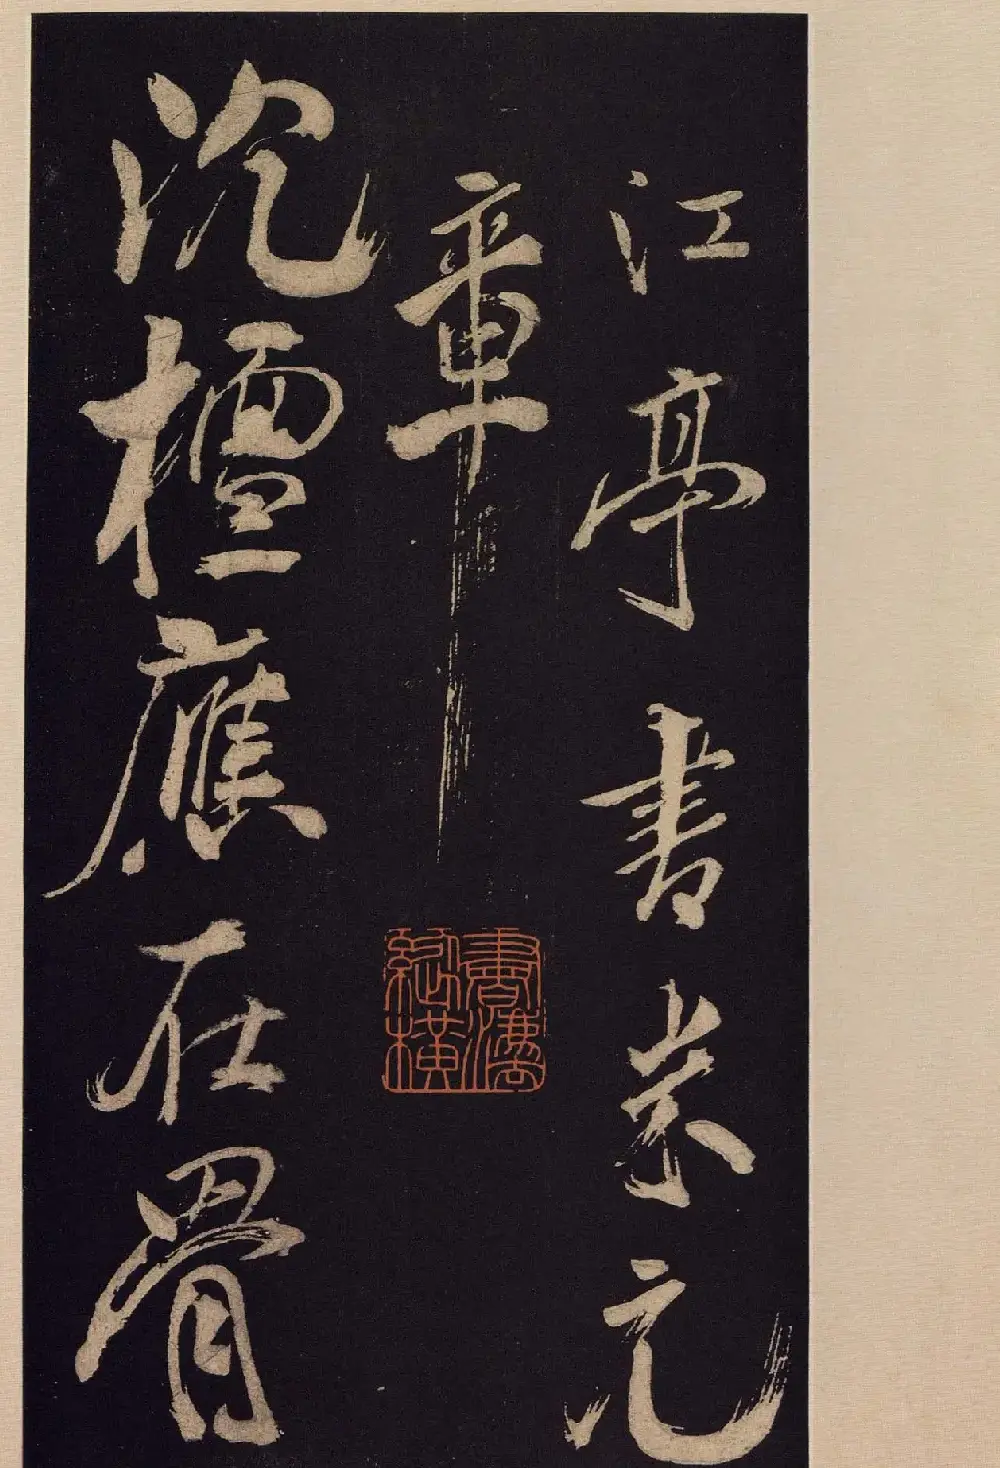 江亭書米元
章
沉檀應在骨